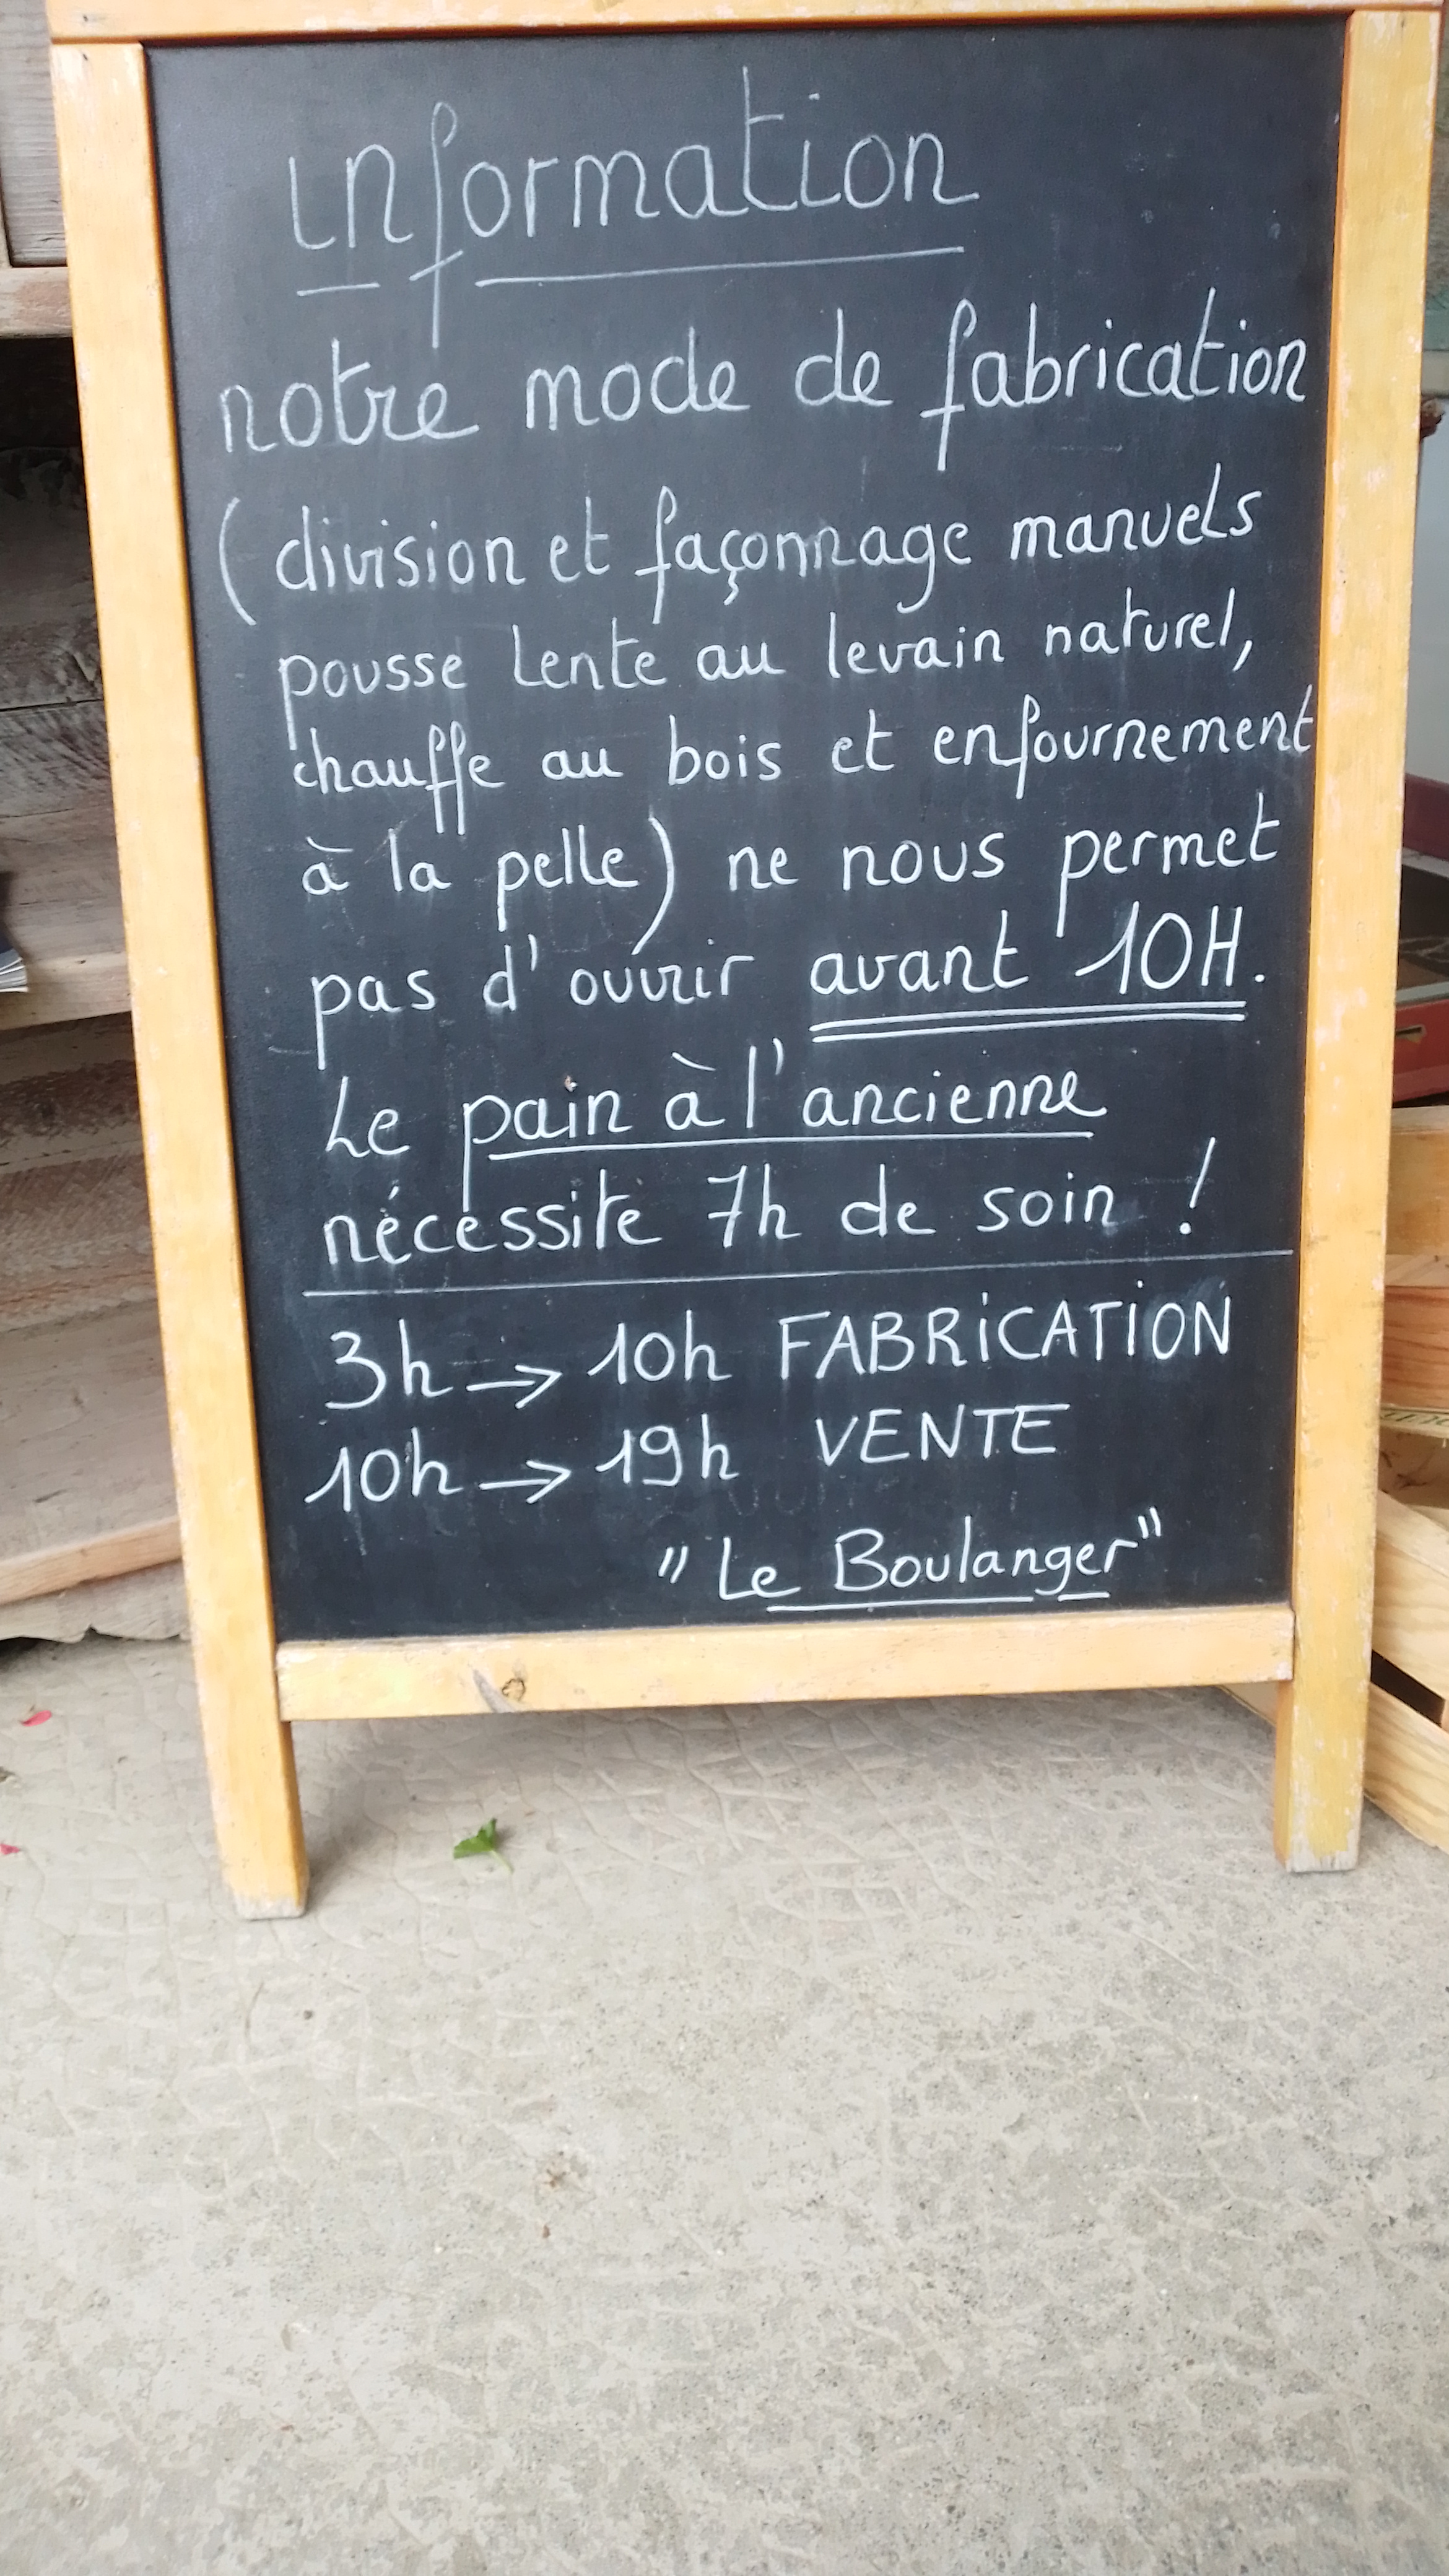 information
notre mode de fabrication
( division et façonnage manuels
pousse lente au levain naturel,
chauffe au bois et enfournement
à la pelle) ne nous permet
pas d'ouvrir avant 10H.
Le pain à l'ancienne
nécessite 7h de soin !
3h → 10h FABRICATION
10h → 19h VENTE
"Le Boulanger"